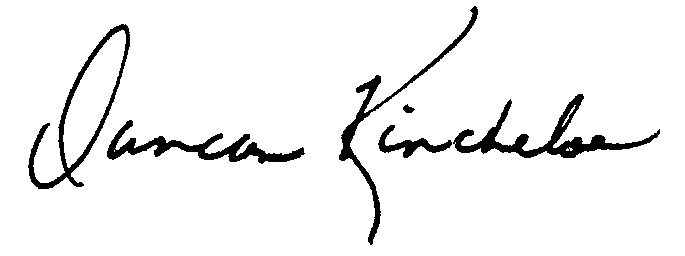 Duncan Kincheloe